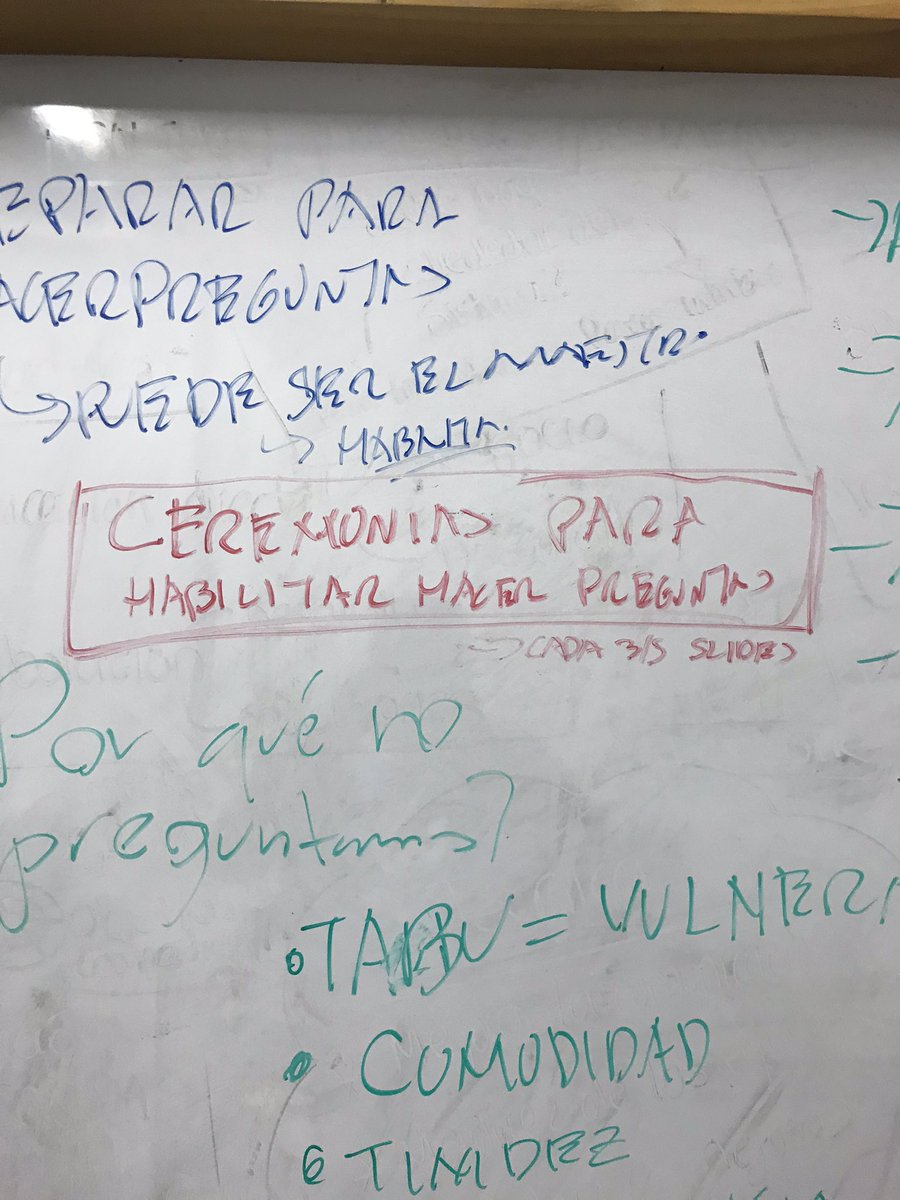 EPARAR PARA
ACER PREGUNTAS
↳ PUEDE SER EL MAESTR.
↳ HABILITA.
CEREMONIAS PARA
HABILITAR HACER PREGUNTAS
→ CADA 3/5 SLIDES
Por qué no
preguntamos?
• TABU = VULNERA
• COMODIDAD
• TIMIDEZ